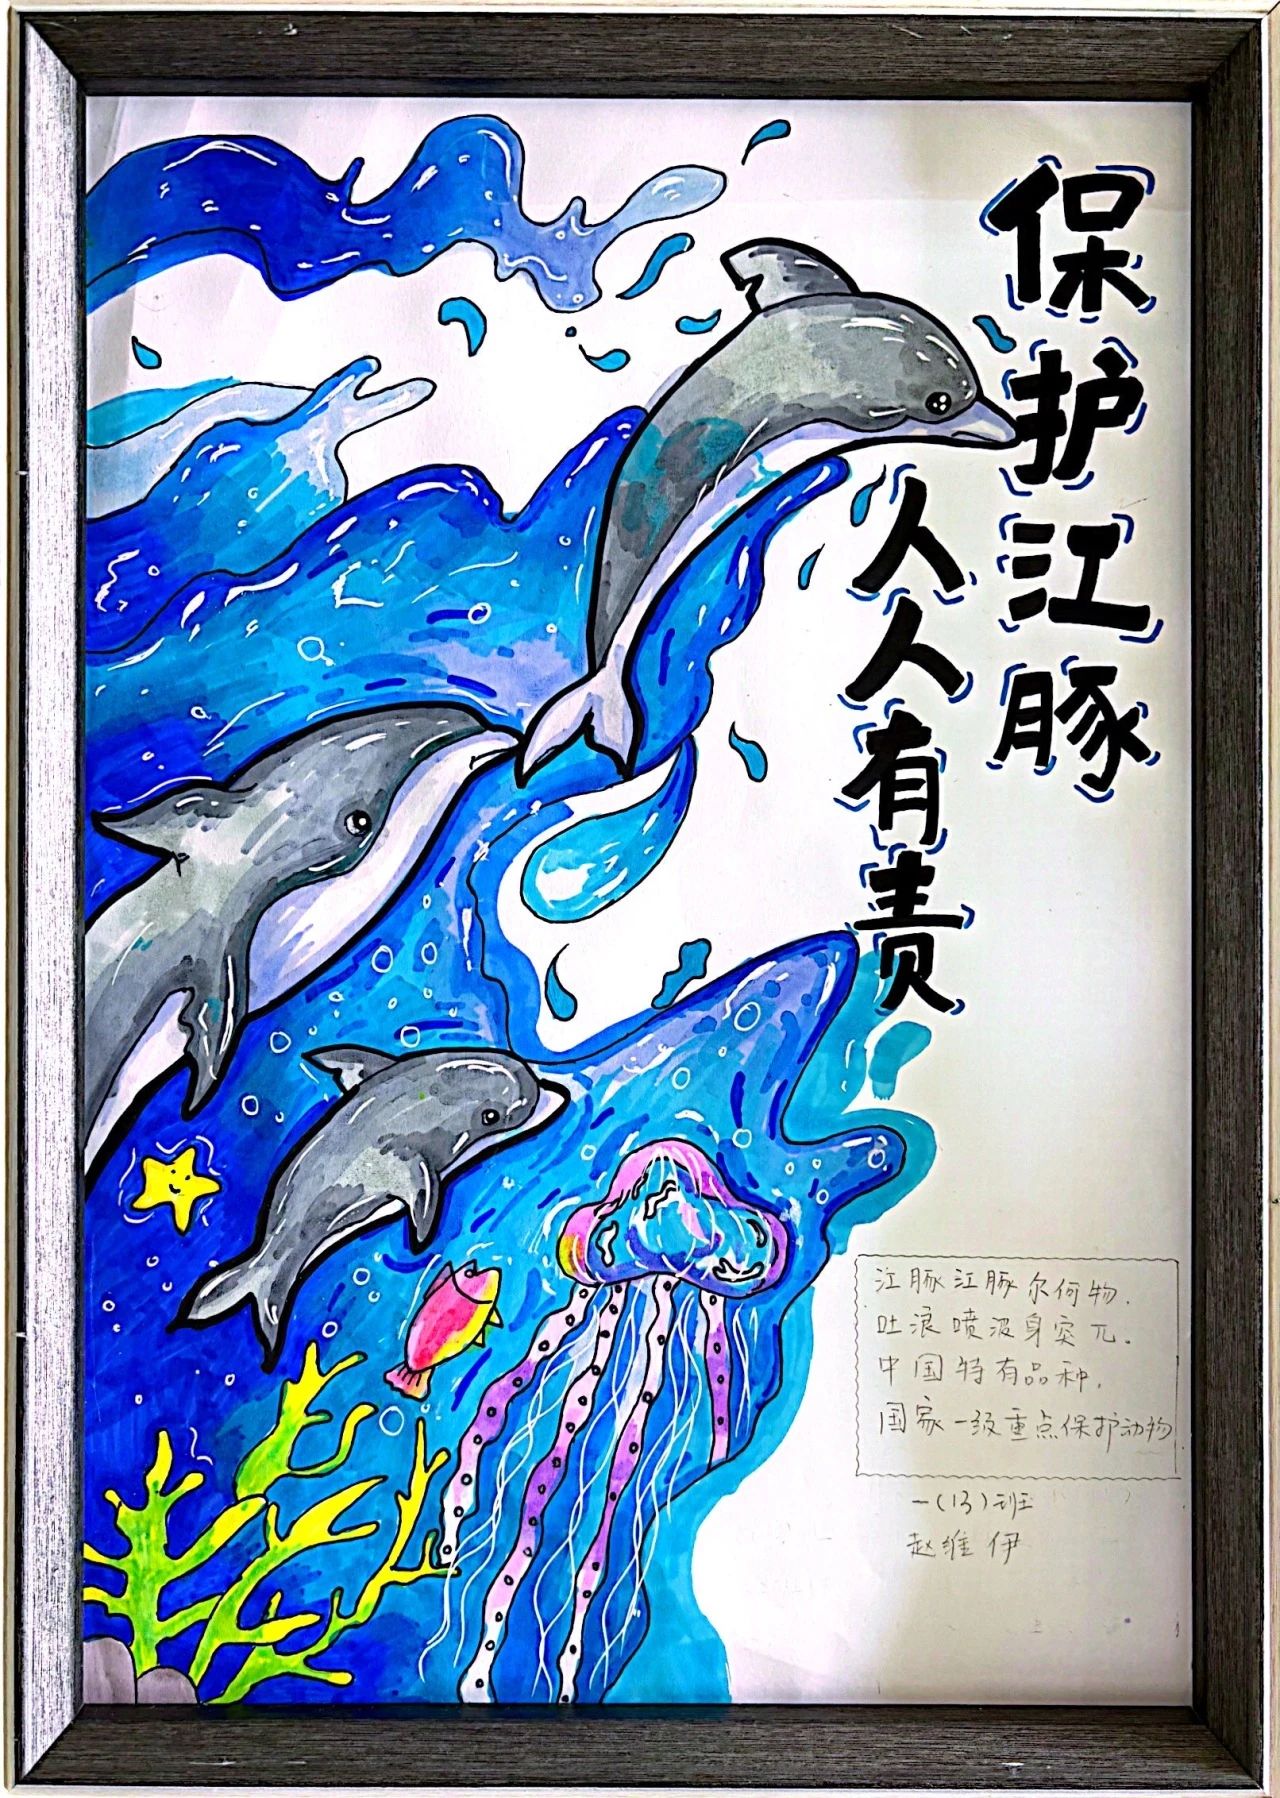 保护江豚
人人有责
江豚江豚尔何物.
吐浪喷波身突兀.
中国特有品种.
国家一级重点保护动物
一(13)班
赵维伊